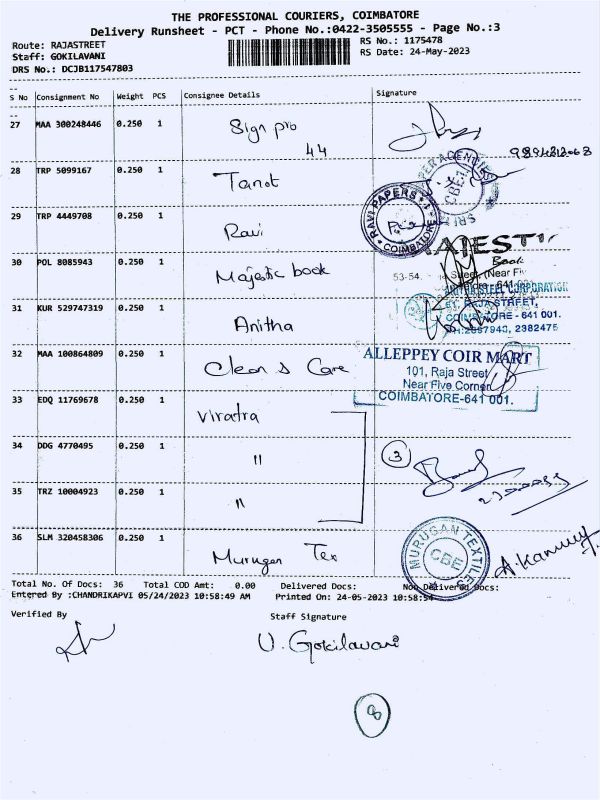 THE PROFESSIONAL COURIERS, COIMBATORE
Delivery Runsheet - PCT - Phone No.:0422-3505555 - Page No.:3
Route: RAJASTREET
RS No.: 1175478
Staff: GOKILAVANI
RS Date: 24-May-2023
DRS No.: DCJB117547803
S No Consignment No Weight PCS Consignee Details Signature
27 MAA 300248446 0.250 1 Sign pro
44
28 TRP 5099167 0.250 1 Tanot
29 TRP 4449708 0.250 1 Ravi
RAVI PAPERS
COIMBATORE
30 POL 8085943 0.250 1 Majestic book
Book
53-54,
(Near
31 KUR 529747319 0.250 1 Anitha
STEEL CORPORATION
RAJA STREET,
COIMBATORE - 641 001.
PH:2397940, 2382475
32 MAA 100864809 0.250 1 Clean & Care
ALLEPPEY COIR MART
101, Raja Street
Near Five Corner
COIMBATORE-641 001.
33 EDQ 11769678 0.250 1 Viratra
34 DDG 4770495 0.250 1 "
3
35 TRZ 10004923 0.250 1 "
36 SLM 320458306 0.250 1 Murugan Tex
MURUGAN TEXTILES
CBE
Total No. Of Docs: 36 Total COD Amt: 0.00 Delivered Docs: Non Delivered Docs:
Entered By :CHANDRIKAPVI 05/24/2023 10:58:49 AM Printed On: 24-05-2023 10:58:54
Verified By
Staff Signature
U. Gokilavani
8